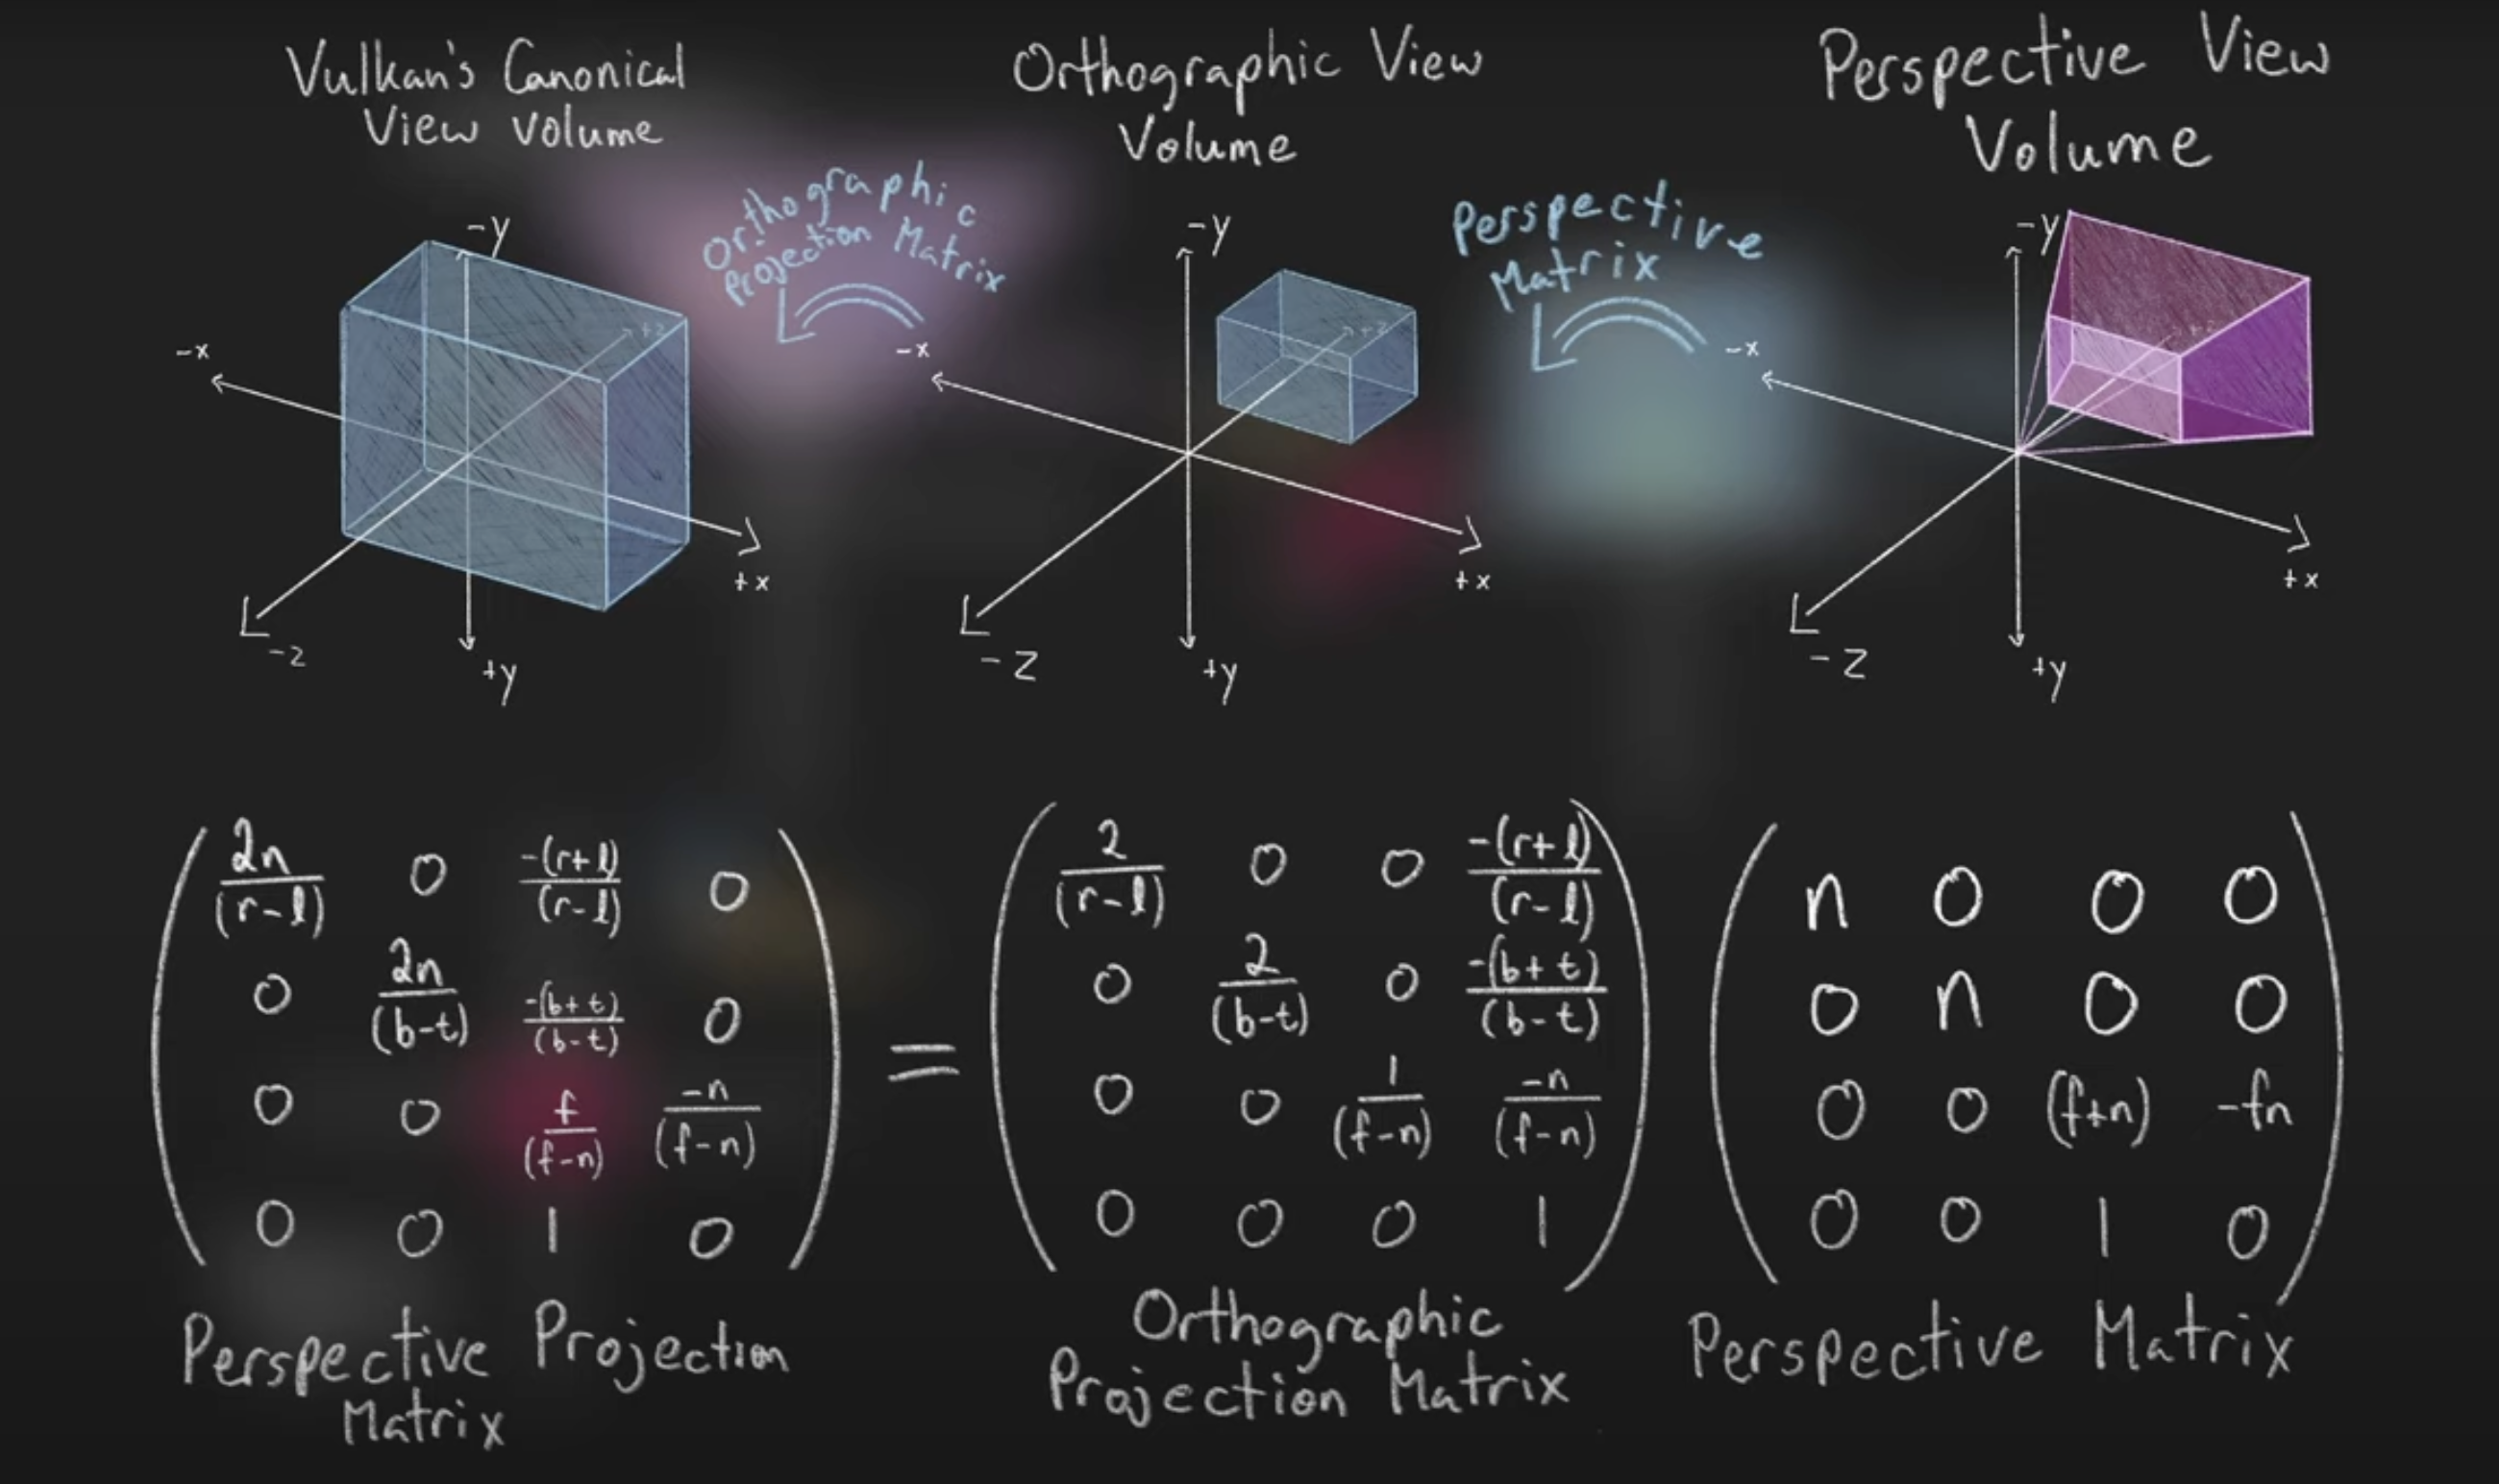 Vulkan's Canonical
View Volume
Orthographic View
Volume
Perspective View
Volume
Orthographic
Projection Matrix
Perspective
Matrix
-y
+z
-x
+x
-z
+y
-y
+z
-x
+x
-z
+y
-y
+z
-x
+x
-z
+y
2n/(r-l) 0 -(r+l)/(r-l) 0
0 2n/(b-t) -(b+t)/(b-t) 0
0 0 f/(f-n) -n/(f-n)
0 0 1 0
=
2/(r-l) 0 0 -(r+l)/(r-l)
0 2/(b-t) 0 -(b+t)/(b-t)
0 0 1/(f-n) -n/(f-n)
0 0 0 1
n 0 0 0
0 n 0 0
0 0 (f+n) -fn
0 0 1 0
Perspective Projection
Matrix
Orthographic
Projection Matrix
Perspective Matrix